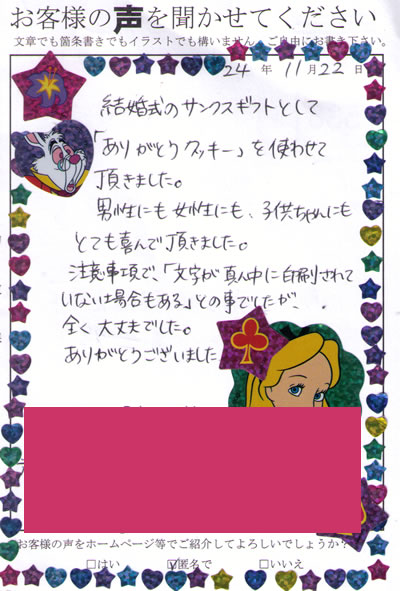 お客様の声を聞かせてください
文章でも箇条書きでもイラストでも構いません。ご自由にお書き下さい。
24年11月22日
結婚式のサンクスギフトとして
「ありがとうクッキー」を使わせて
頂きました。
男性にも女性にも、子供ちゃんにも
とても喜んで頂きました。
注意事項で、「文字が真ん中に印刷されて
いない場合もある」との事でしたが、
全く大丈夫でした。
ありがとうございました
お客様の声をホームページ等でご紹介してよろしいでしょうか?
□はい ☑匿名で □いいえ